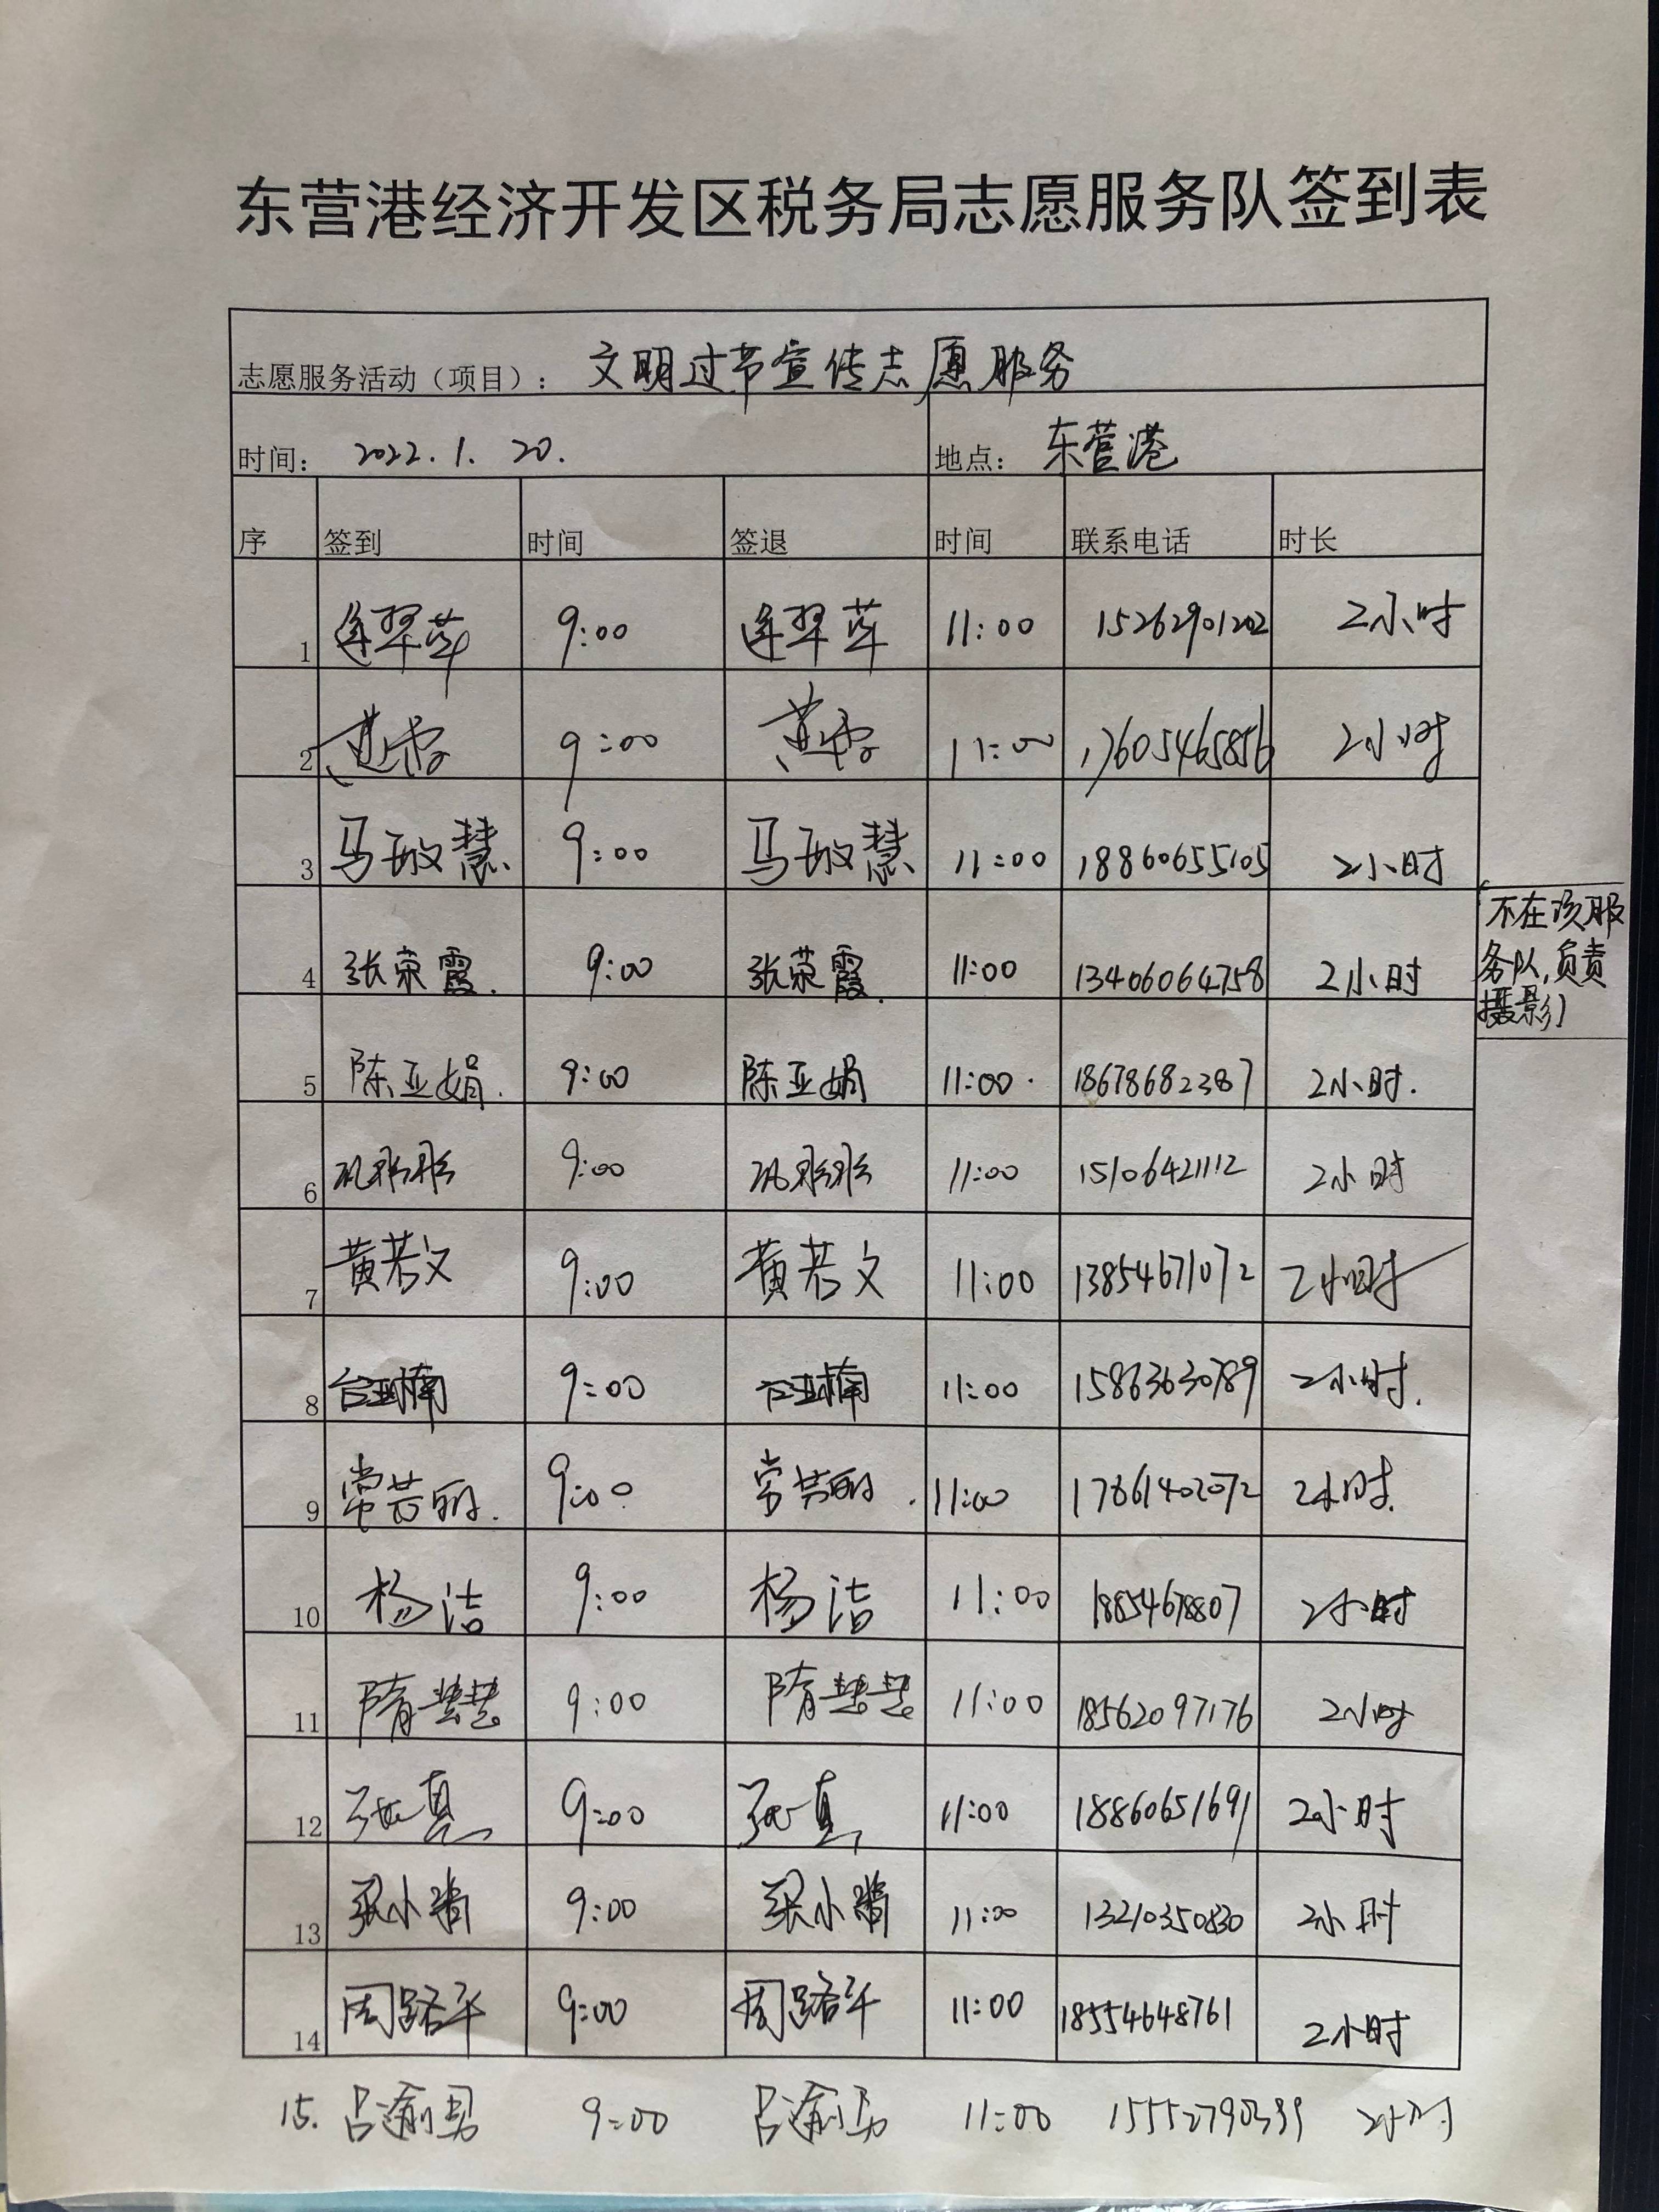 东营港经济开发区税务局志愿服务队签到表
志愿服务活动（项目）： 文明过节宣传志愿服务
时间： 2022.1.20. 地点： 东营港
序 签到 时间 签退 时间 联系电话 时长
1 连翠萍 9:00 连翠萍 11:00 15262901202 2小时
2 黄雪 9:00 黄雪 11:00 17605465856 2小时
3 马敏慧 9:00 马敏慧 11:00 18860655105 2小时
4 张荣霞. 9:00 张荣霞. 11:00 13406064758 2小时
不在该服
务队,负责
摄影
5 陈亚娟. 9:00 陈亚娟 11:00. 18678682387 2小时.
6 巩彤彤 9:00 巩彤彤 11:00 15106421112 2小时
7 黄若文 9:00 黄若文 11:00 13854671072 2小时
8 9:00 11:00 15863630789 2小时.
9 常芸丽. 9:00 常芸丽. 11:00 17861402072 2小时.
10 杨洁 9:00 杨洁 11:00 2小时
11 隋慧慧 9:00 隋慧慧 11:00 18562097176 2小时
12 张真 9:00 张真 11:00 18860651691 2小时
13 9:00 11:00 13210350830 2小时
14 周路平 9:00 周路平 11:00 18554648761 2小时
15. 吕渝男 9:00 吕渝男 11:00 15552790399 2小时